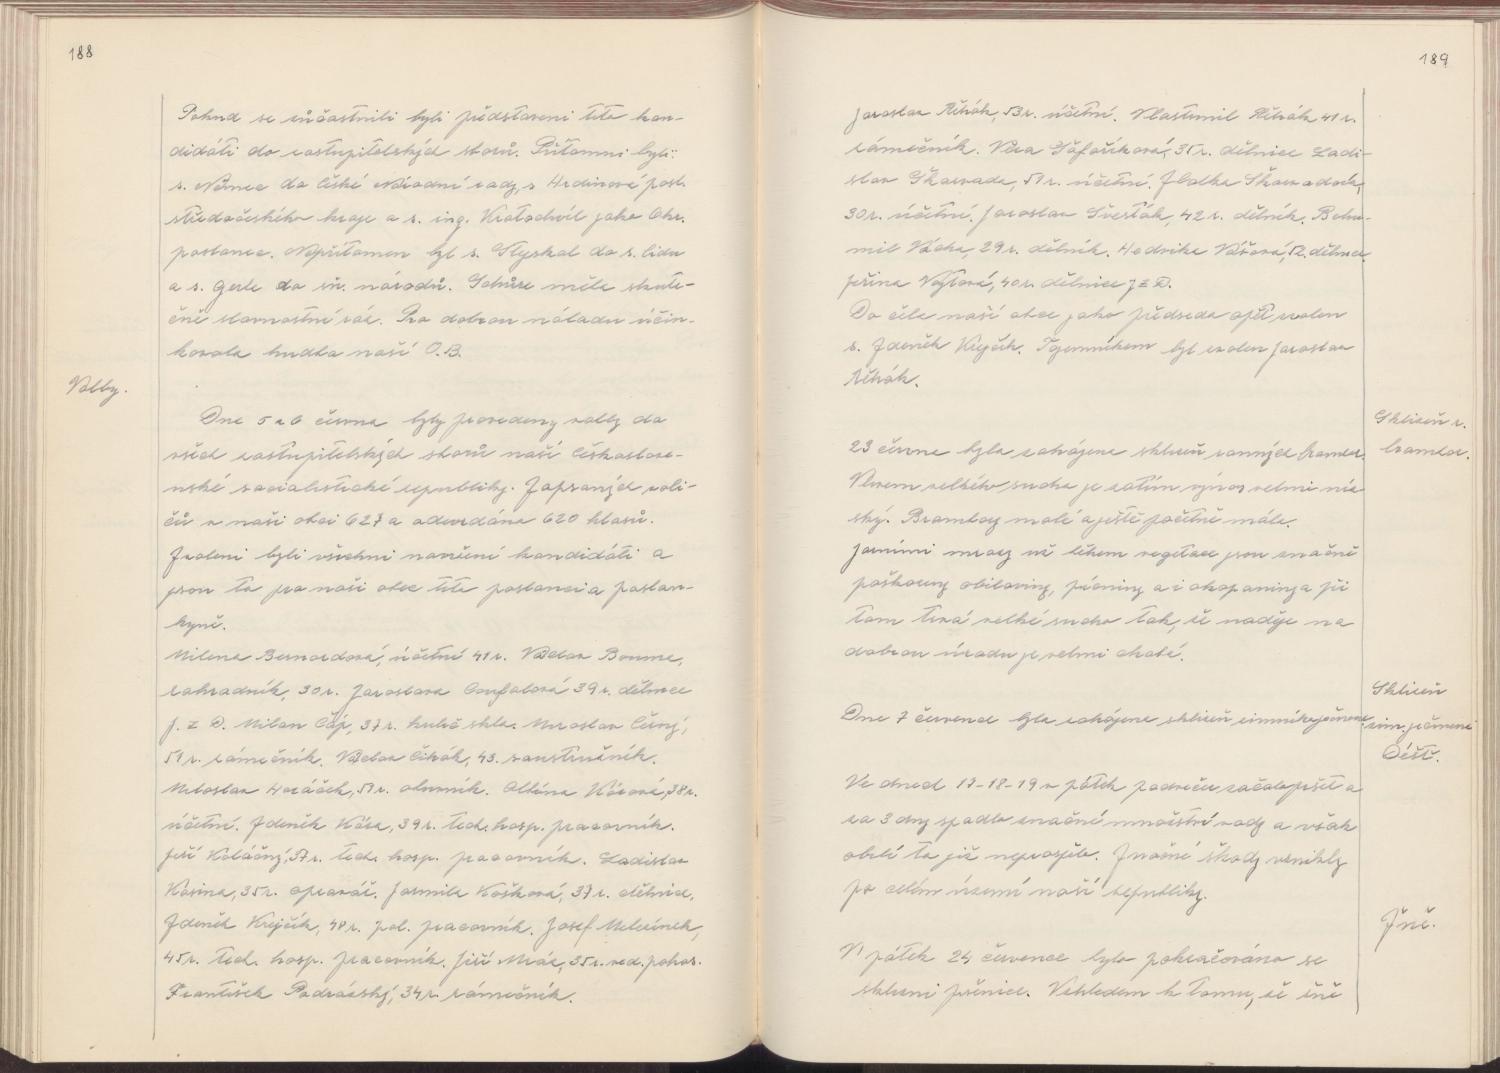 188
Pokud se zúčastnili byli představeni tito kan-
didáti do zastupitelských sborů. Přítomni byli:
s. Němec do České Národní rady, s Hrdinová posl.
středočeského kraje a s. ing. Kratochvíl jako Okr.
poslanec. Nepřítomen byl s. Styskal do s. lidu
a s. Gerle do sn. národů. Schůze měla skute-
čně slavnostní ráz. Pro dobrou náladu účin-
kovala hudba naší O.B.
Volby.
Dne 5 a 6 června byly provedeny volby do
všech zastupitelských sborů naší Českoslove-
nské socialistické republiky. Zapsaných voli-
čů v naší obci 627 a odevzdáno 620 hlasů.
Zvoleni byli všichni navržení kandidáti a
jsou to pro naši obec tito poslanci a poslan-
kyně.
Milena Bernardová, účetní 41 r. Václav Bouma,
zahradník, 30 r. Jaroslava Coufalová 39 r. dělnice
J. Z D. Milan Čáp, 37 r. hulič skla. Miroslav Černý,
51 r. zámečník. Václav Čihák, 43. soustružník.
Miloslav Horáček, 51 r. obuvník. Alběna Kósová, 38 r.
účetní. Zdeněk Kósa, 39 r. tech. hosp. pracovník.
Jiří Koláčný, 37 r. tech. hosp. pracovník. Ladislav
Kosina, 35 r. opravář. Jarmila Košková, 37 r. dělnice,
Zdeněk Krejčík, 48 r. pol. pracovník. Josef Melezínek,
45 r. tech. hosp. pracovník. Jiří Mráz, 35 r. ved. pohos.
František Podrázský, 34 r. zámečník.
189
Jaroslav Řihák, 53 r. účetní. Vlastimil Řihák 41 r.
zámečník. Věra Šafaříková, 35 r. dělnice Ladi-
slav Škavrada, 51 r. účetní. Zlatka
30 r. účetní. Jaroslav Šversták, 42 r. dělník. Bohu-
mil Vácha, 29 r. dělník. Hedvika dělnice,
Jiřina Vojtová, 40 r. dělnice J Z D.
Do čela naší obce jako předseda opět zvolen
s. Zdeněk Krejčík. Tajemníkem byl zvolen Jaroslav
Řihák.
Sklizeň r.
brambor.
23 června byla zahájena sklizeň ranných brambor.
Vlivem velkého sucha je zatím výnos velmi níz-
ský. Brambory malé a ještě počtně málo.
Jarními mrazy už během vegetace jsou značně
poškozeny obiloviny, pícniny a i okopaniny a při
tom trvá velké sucho tak, že naděje na
dobrou úrodu je velmi chabá.
Sklizeň
zim. ječmene
Dne 7 července byla zahájena sklizeň zimního ječmene
Déšť.
Ve dnech 17-18-19 v pátek podvečer začalo pršet a
za 3 dny spadlo značné množství vody a však
obilí to již neprospělo. Značné škody vznikly
po celém území naší republiky.
Žně.
V pátek 24 července bylo pokračováno se
sklizni pšenice. Vzhledem k tomu, že žně